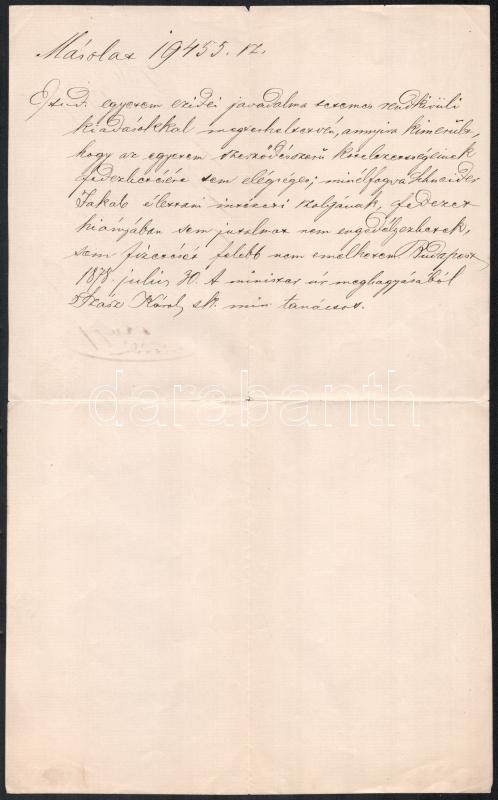 Másolat 19455. sz.
A tud. egyetem ezidei javadalma tetemes rendkivüli
kiadásokkal megterheltetvén, annyira kimerült,
hogy az egyetem szerződésszerü kötelezettségeinek
fedezhetésére sem elégséges; minélfogva Schneider
Jakab élettani intézeti szolgának, fedezet
hiányában sem jutalmat nem engedélyezhetek,
sem fizetését felebb nem emelhetem. Budapest
1878. julius 30. A miniszter úr meghagyásából
Szász Károly sk. min. tanácsos.
darabanth